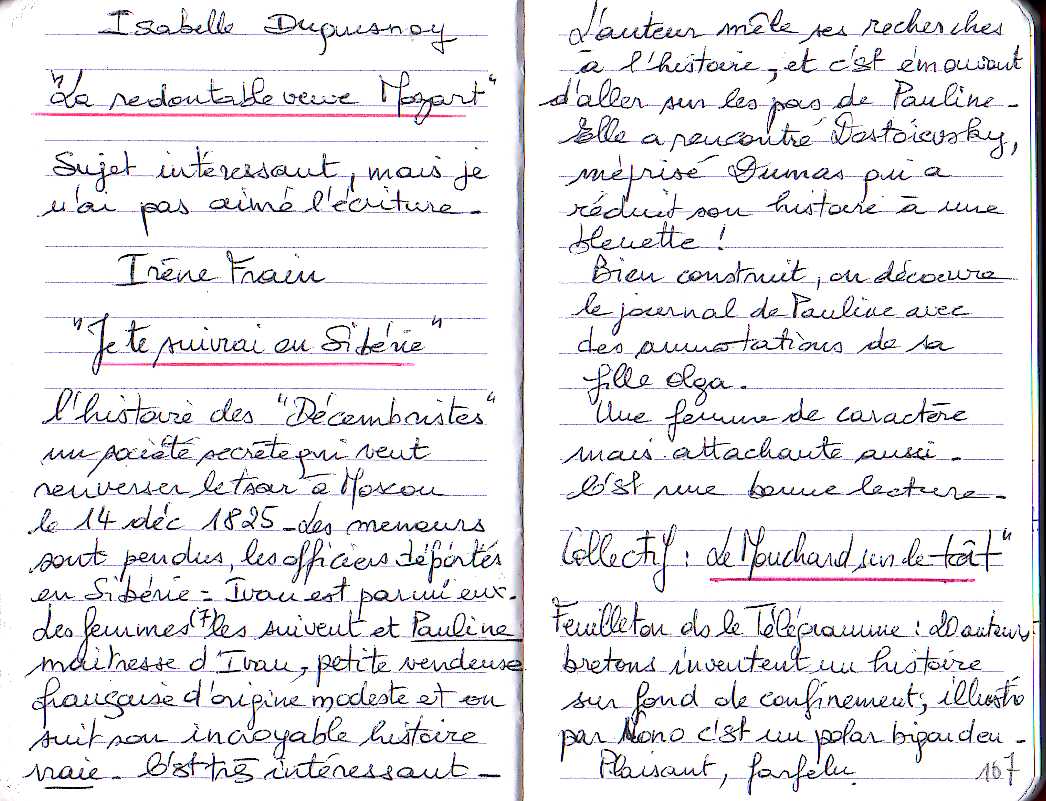 Isabelle Duquesnoy
"La redoutable veuve Mozart"
Sujet intéressant, mais je
n'ai pas aimé l'écriture.
Irène Frain
"Je te suivrai en Sibérie"
l'histoire des "Décembristes"
un société secrète qui veut
renverser le tsar à Moscou
le 14 déc 1825 - Les meneurs
sont pendus, les officiers déportés
en Sibérie = Ivan est parmi eux.
des femmes (7) les suivent et Pauline
maîtresse d'Ivan, petite vendeuse
française d'origine modeste et on
suit son incroyable histoire
vraie. C'est très intéressant -
L'auteur mêle ses recherches
à l'histoire, et c'est émouvant
d'aller sur les pas de Pauline -
Elle a rencontré Dostoïevsky,
méprisé Dumas qui a
réduit son histoire à une
bleuette !
Bien construit, on découvre
le journal de Pauline avec
des annotations de sa
fille Olga.
Une femme de caractère
mais attachante aussi.
C'est une bonne lecture -
Collectif : Le Mouchard sur le toît"
Feuilleton ds le Télégramme : 20 auteurs
bretons inventent un histoire
sur fond de confinement, illustré
par Nono c'est un polar bigouden -
Plaisant, farfelu
167